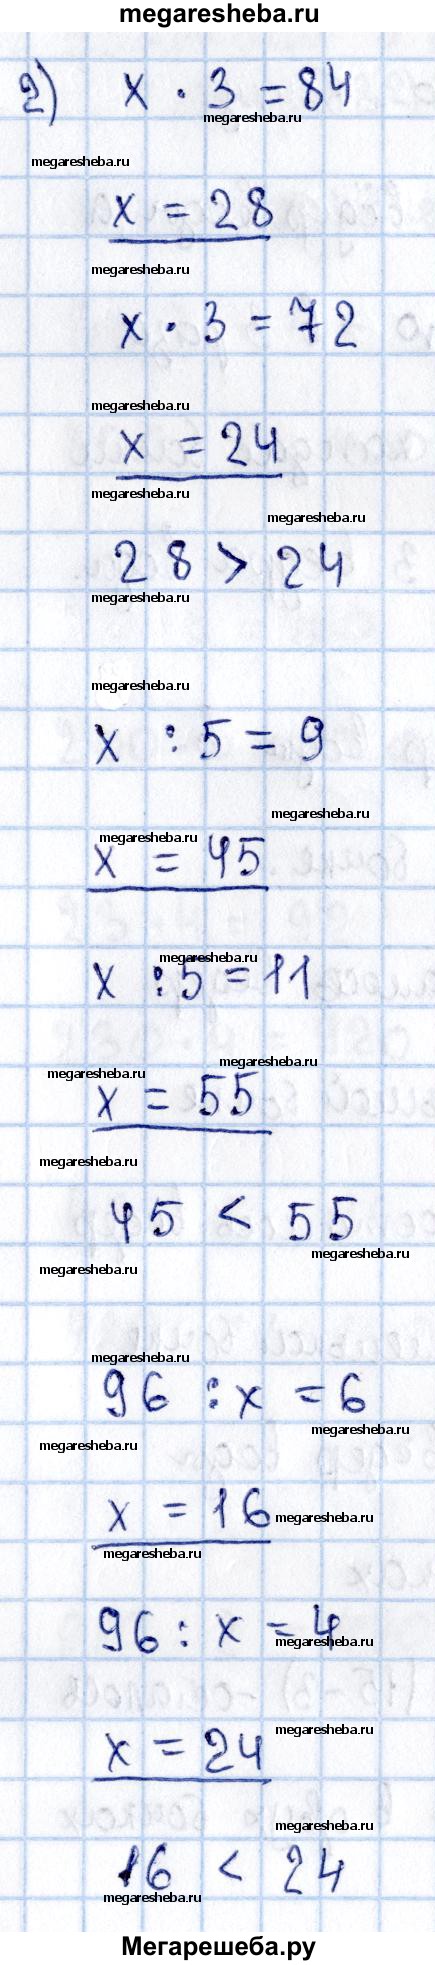 megaresheba.ru
2) x · 3 = 84
megaresheba.ru
megaresheba.ru
x = 28
megaresheba.ru
x · 3 = 72
megaresheba.ru
x = 24
megaresheba.ru
megaresheba.ru
28 > 24
megaresheba.ru
megaresheba.ru
x : 5 = 9
megaresheba.ru
megaresheba.ru
x = 45
megaresheba.ru
x : 5 = 11
megaresheba.ru
megaresheba.ru
x = 55
megaresheba.ru
45 < 55
megaresheba.ru
megaresheba.ru
megaresheba.ru
96 : x = 6
megaresheba.ru
megaresheba.ru
x = 16
megaresheba.ru
megaresheba.ru
96 : x = 4
megaresheba.ru
megaresheba.ru
x = 24
megaresheba.ru
16 < 24
megaresheba.ru
Мегарешеба.ру